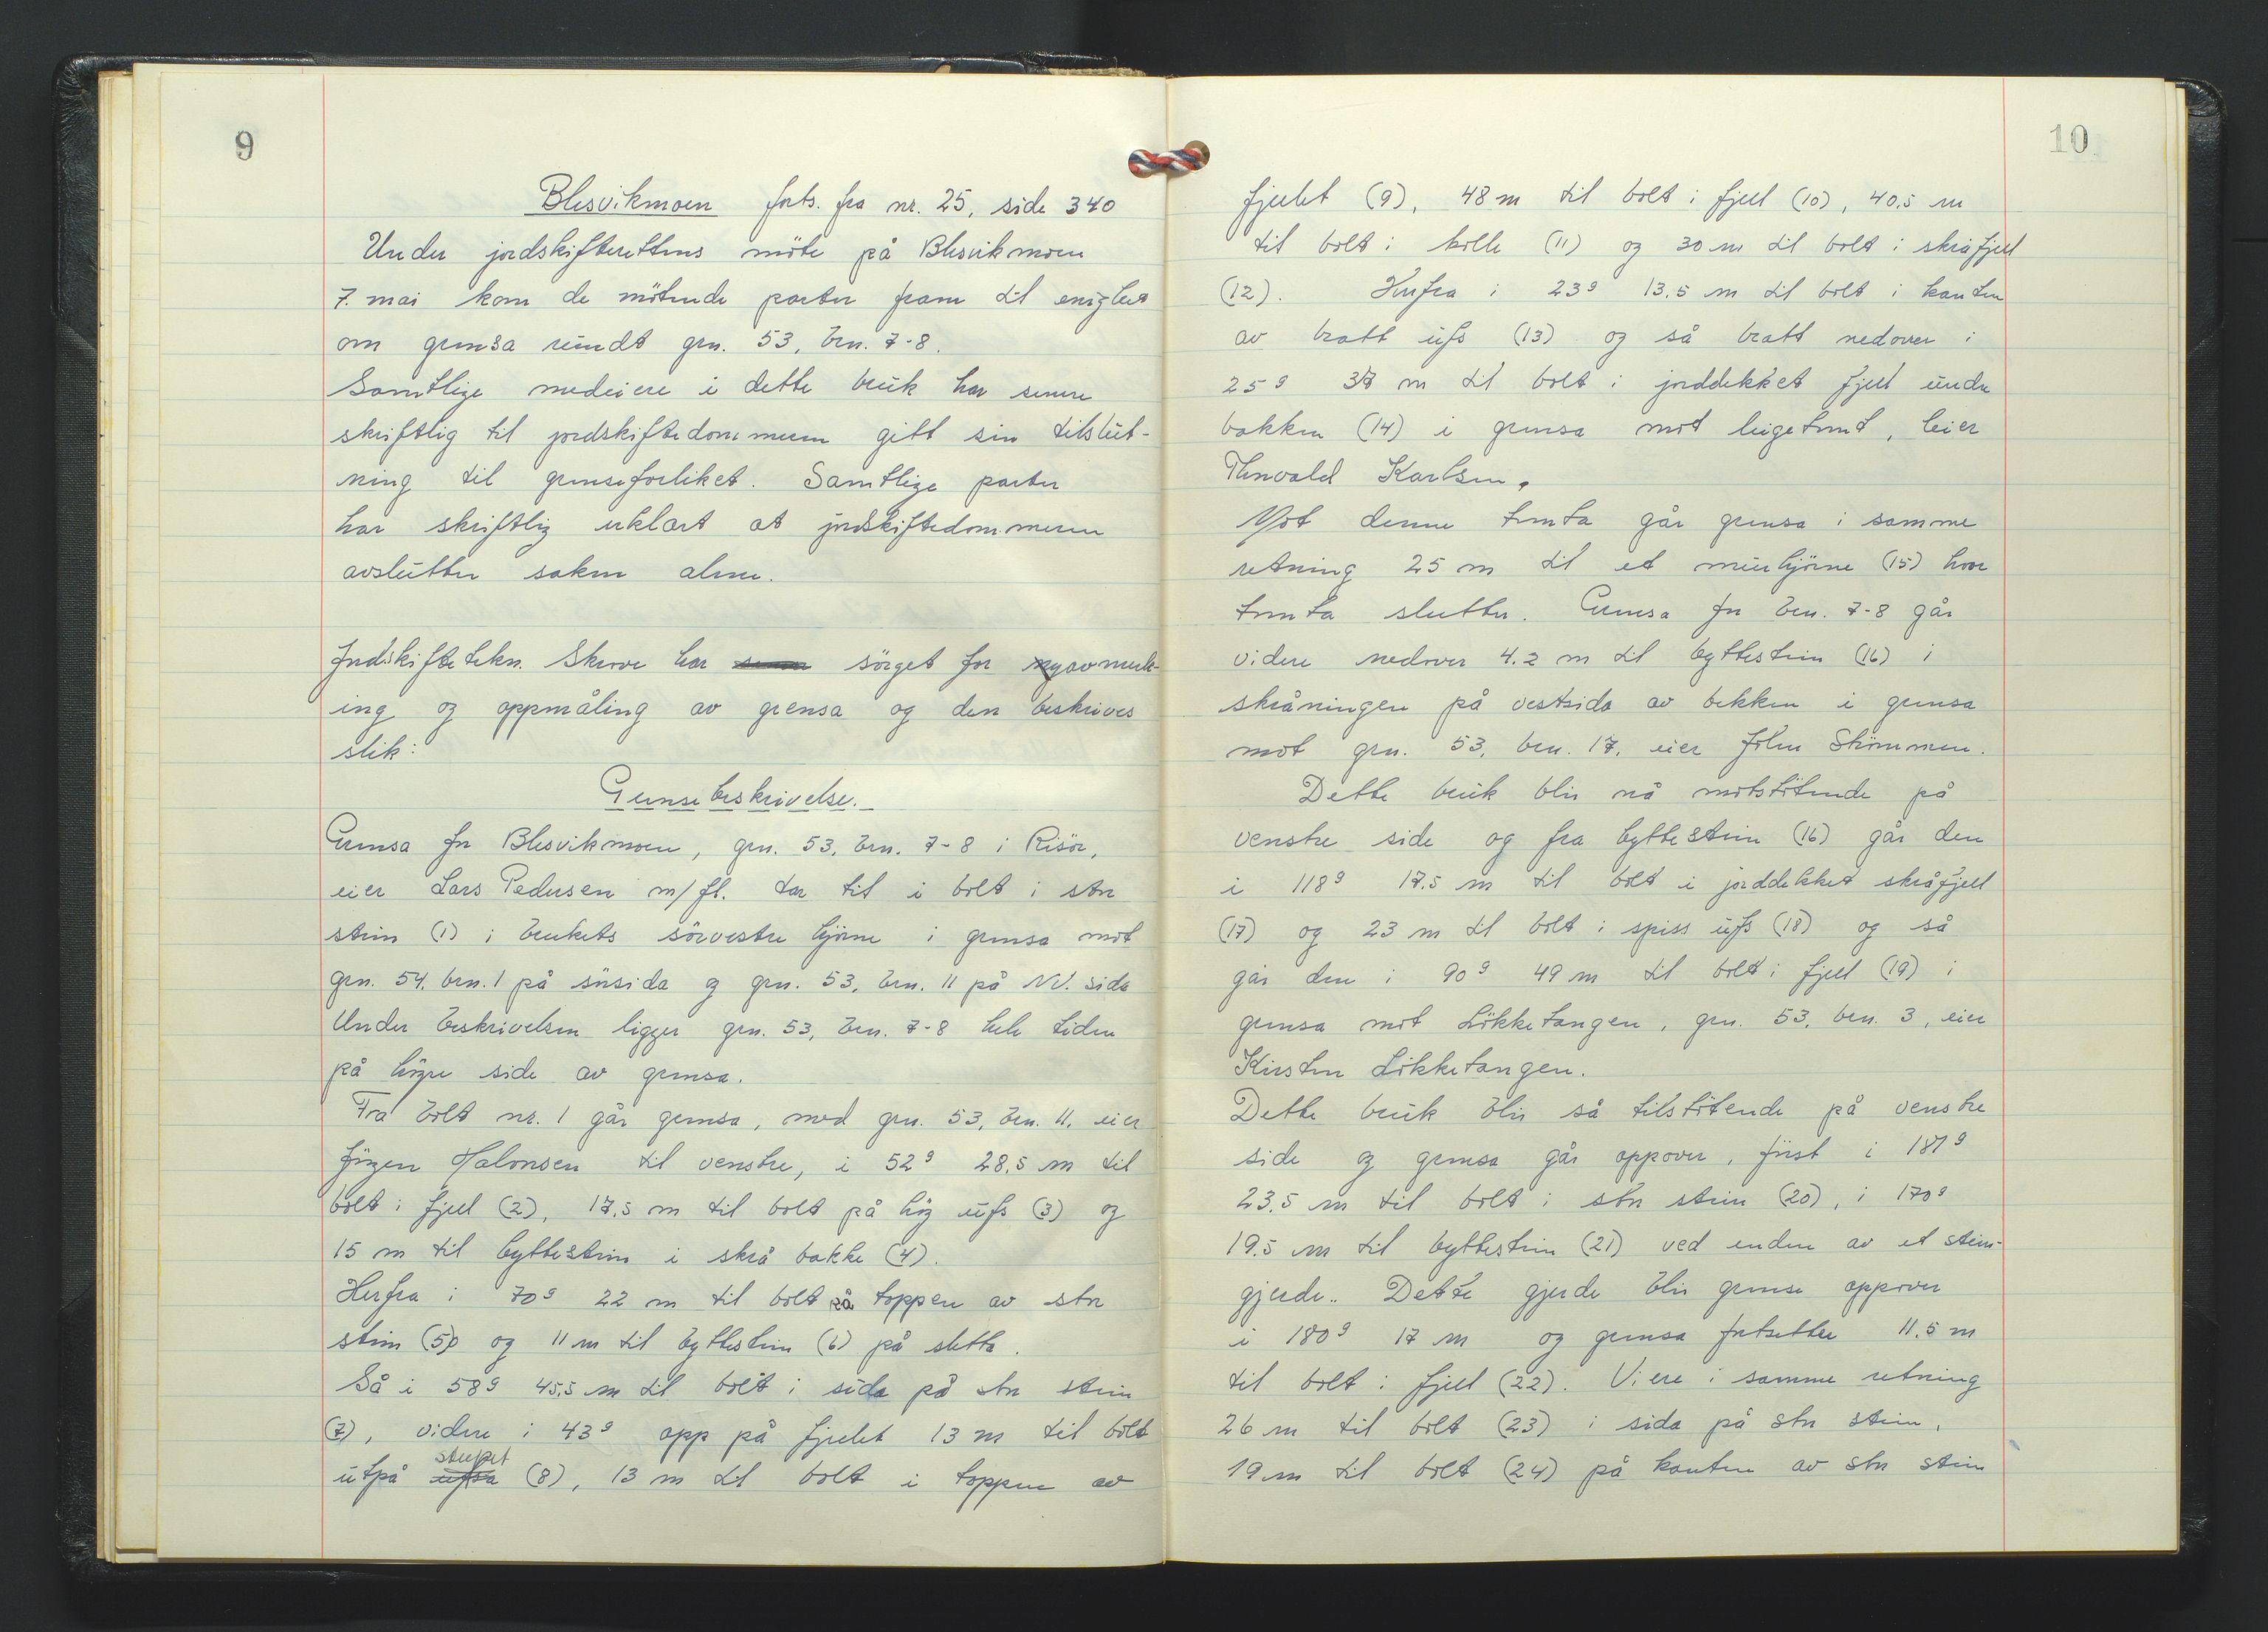 9
Blesvikmoen forts. fra nr. 25, side 340
Under jordskifterettens möte på Blesvikmoen
7. mai kom de mötende parter fram til enighet
om grensa rundt grn. 53, brn. 7-8.
Samtlige medeiere i dette bruk har senere
skriftlig til jordskiftedommeren gitt sin tilslut-
ning til grenseforliket. Samtlige parter
har skriftlig erklært at jordskiftedommeren
avslutter saken alene.
Jordskiftetekn. Skrove har sörget for avmerk-
ing og oppmåling av grensa og den beskrives
slik:
Grensebeskrivelse.
Grensa for Blesvikmoen, grn. 53, brn. 7-8 i Risör,
eier Lars Pedersen m/fl. tar til i bolt i stor
stein (1) i brukets sörvestre hjörne i grensa mot
grn. 54, brn. 1 på sörsida og grn. 53, brn. 11 på NV. sida
Under beskrivelsen ligger grn. 53, brn. 7-8 hele tiden
på högre side av grensa.
Fra bolt nr. 1 går grensa, med grn. 53, brn. 11, eier
Jörgen Halvorsen til venstre, i 52g 28,5 m til
bolt i fjell (2), 17,5 m til bolt på hög ufs (3) og
15 m til byttestein i skrå bakke (4).
Herfra i 70g 22 m til bolt på toppen av stor
stein (5) og 11 m til byttestein (6) på sletta.
Så i 58g 45,5 m til bolt i sida på stor stein
(7), videre i 43g opp på fjellet 13 m til bolt
utpå ufsa stupet (8), 13 m til bolt i toppen av
10
fjellet (9), 48 m til bolt i fjell (10), 40,5 m
til bolt i kolle (11) og 30 m til bolt i skråfjell
(12). Herfra i 23g 13,5 m til bolt i kanten
av bratt ufs (13) og så bratt nedover i
25g 37 m til bolt i jorddekket fjell under
bakken (14) i grensa mot leigetomt, leier
Thorvald Karlsen.
Mot denne tomta går grensa i samme
retning 25 m til et murhjörne (15) hvor
tomta slutter. Grensa for brn. 7-8 går
videre nedover 4.2 m til byttestein (16) i
skråningen på vestsida av bekken i grensa
mot grn. 53, brn. 17, eier John Strömmen.
Dette bruk blir nå motstötende på
venstre side og fra byttestein (16) går den
i 118g 17,5 m til bolt i jorddekket skråfjell
(17) og 23 m til bolt i spiss ufs (18) og så
går den i 90g 49 m til bolt i fjell (19) i
grensa mot Lökketangen, grn. 53, brn. 3, eier
Kirsten Lökketangen.
Dette bruk blir så tilstötende på venstre
side og grensa går oppover, först i 187g
23,5 m til bolt i stor stein (20), i 170g
19.5 m til byttestein (21) ved enden av et stein-
gjerde. Dette gjerde blir grense oppover
i 180g 17 m og grensa fortsetter 11.5 m
til bolt i fjell (22). Viere i samme retning
26 m til bolt (23) i sida på stor stein,
19 m til bolt (24) på kanten av stor stein